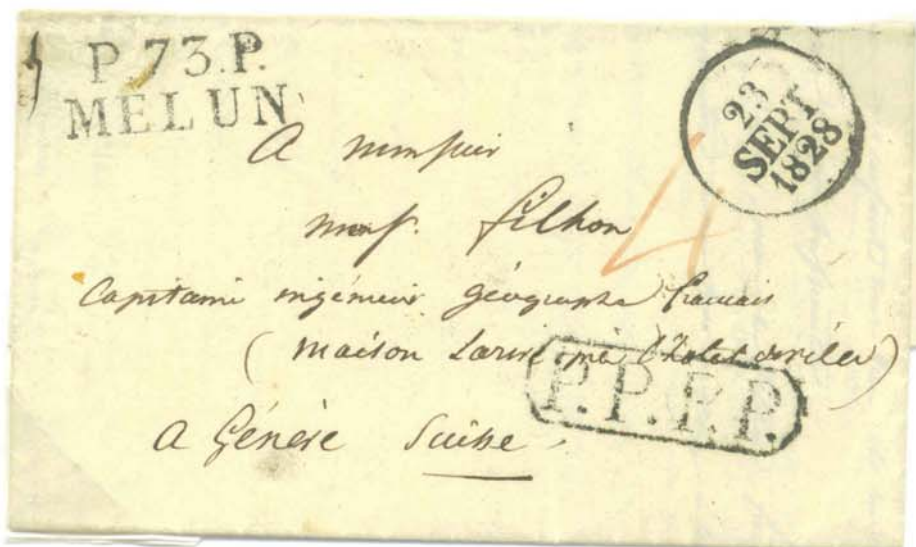 P.73.P.
MELUN
23
SEPT
1828
A monsieur
monsr. filhon
4
Capitaine ingénieur géographe francais
(maison Larive près l'hotel de ville)
P.P.P.P.
A Génève Suisse